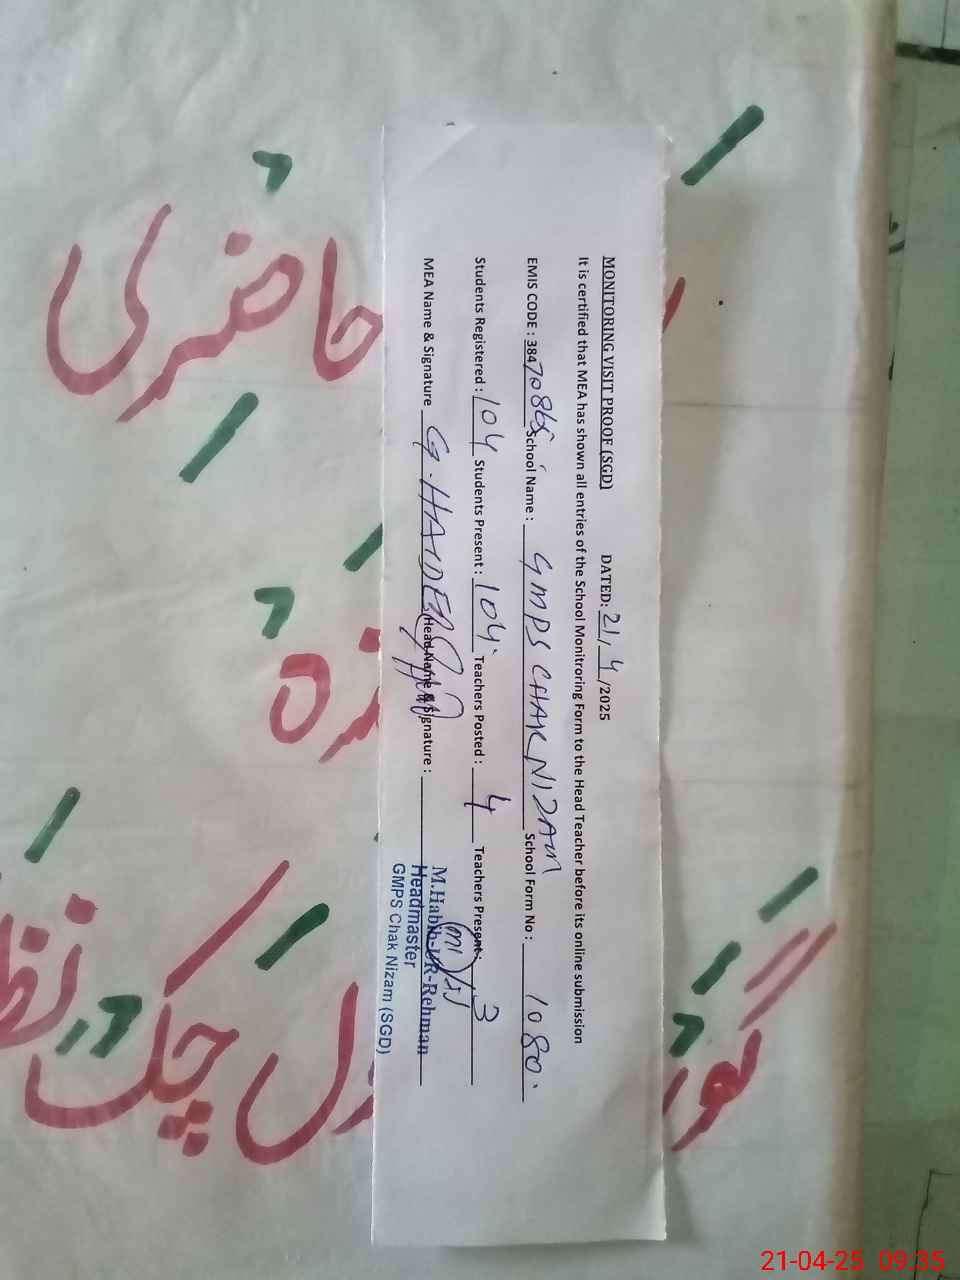 MONITORING VISIT PROOF (SGD) DATED: 21/4/2025
It is certified that MEA has shown all entries of the School Monitroring Form to the Head Teacher before its online submission
EMIS CODE : 384 School Name : GMPS CHAK NIZAM School Form No : 1080.
Students Registered : 104 Students Present : 104. Teachers Posted : 4 Teachers Present : 3
MEA Name & Signature G. HAIDER (Head Name & Signature :
M.Habib-UR-Rehman
Headmaster
GMPS Chak Nizam (SGD)
حاضری
چک
21-04-25 09:35